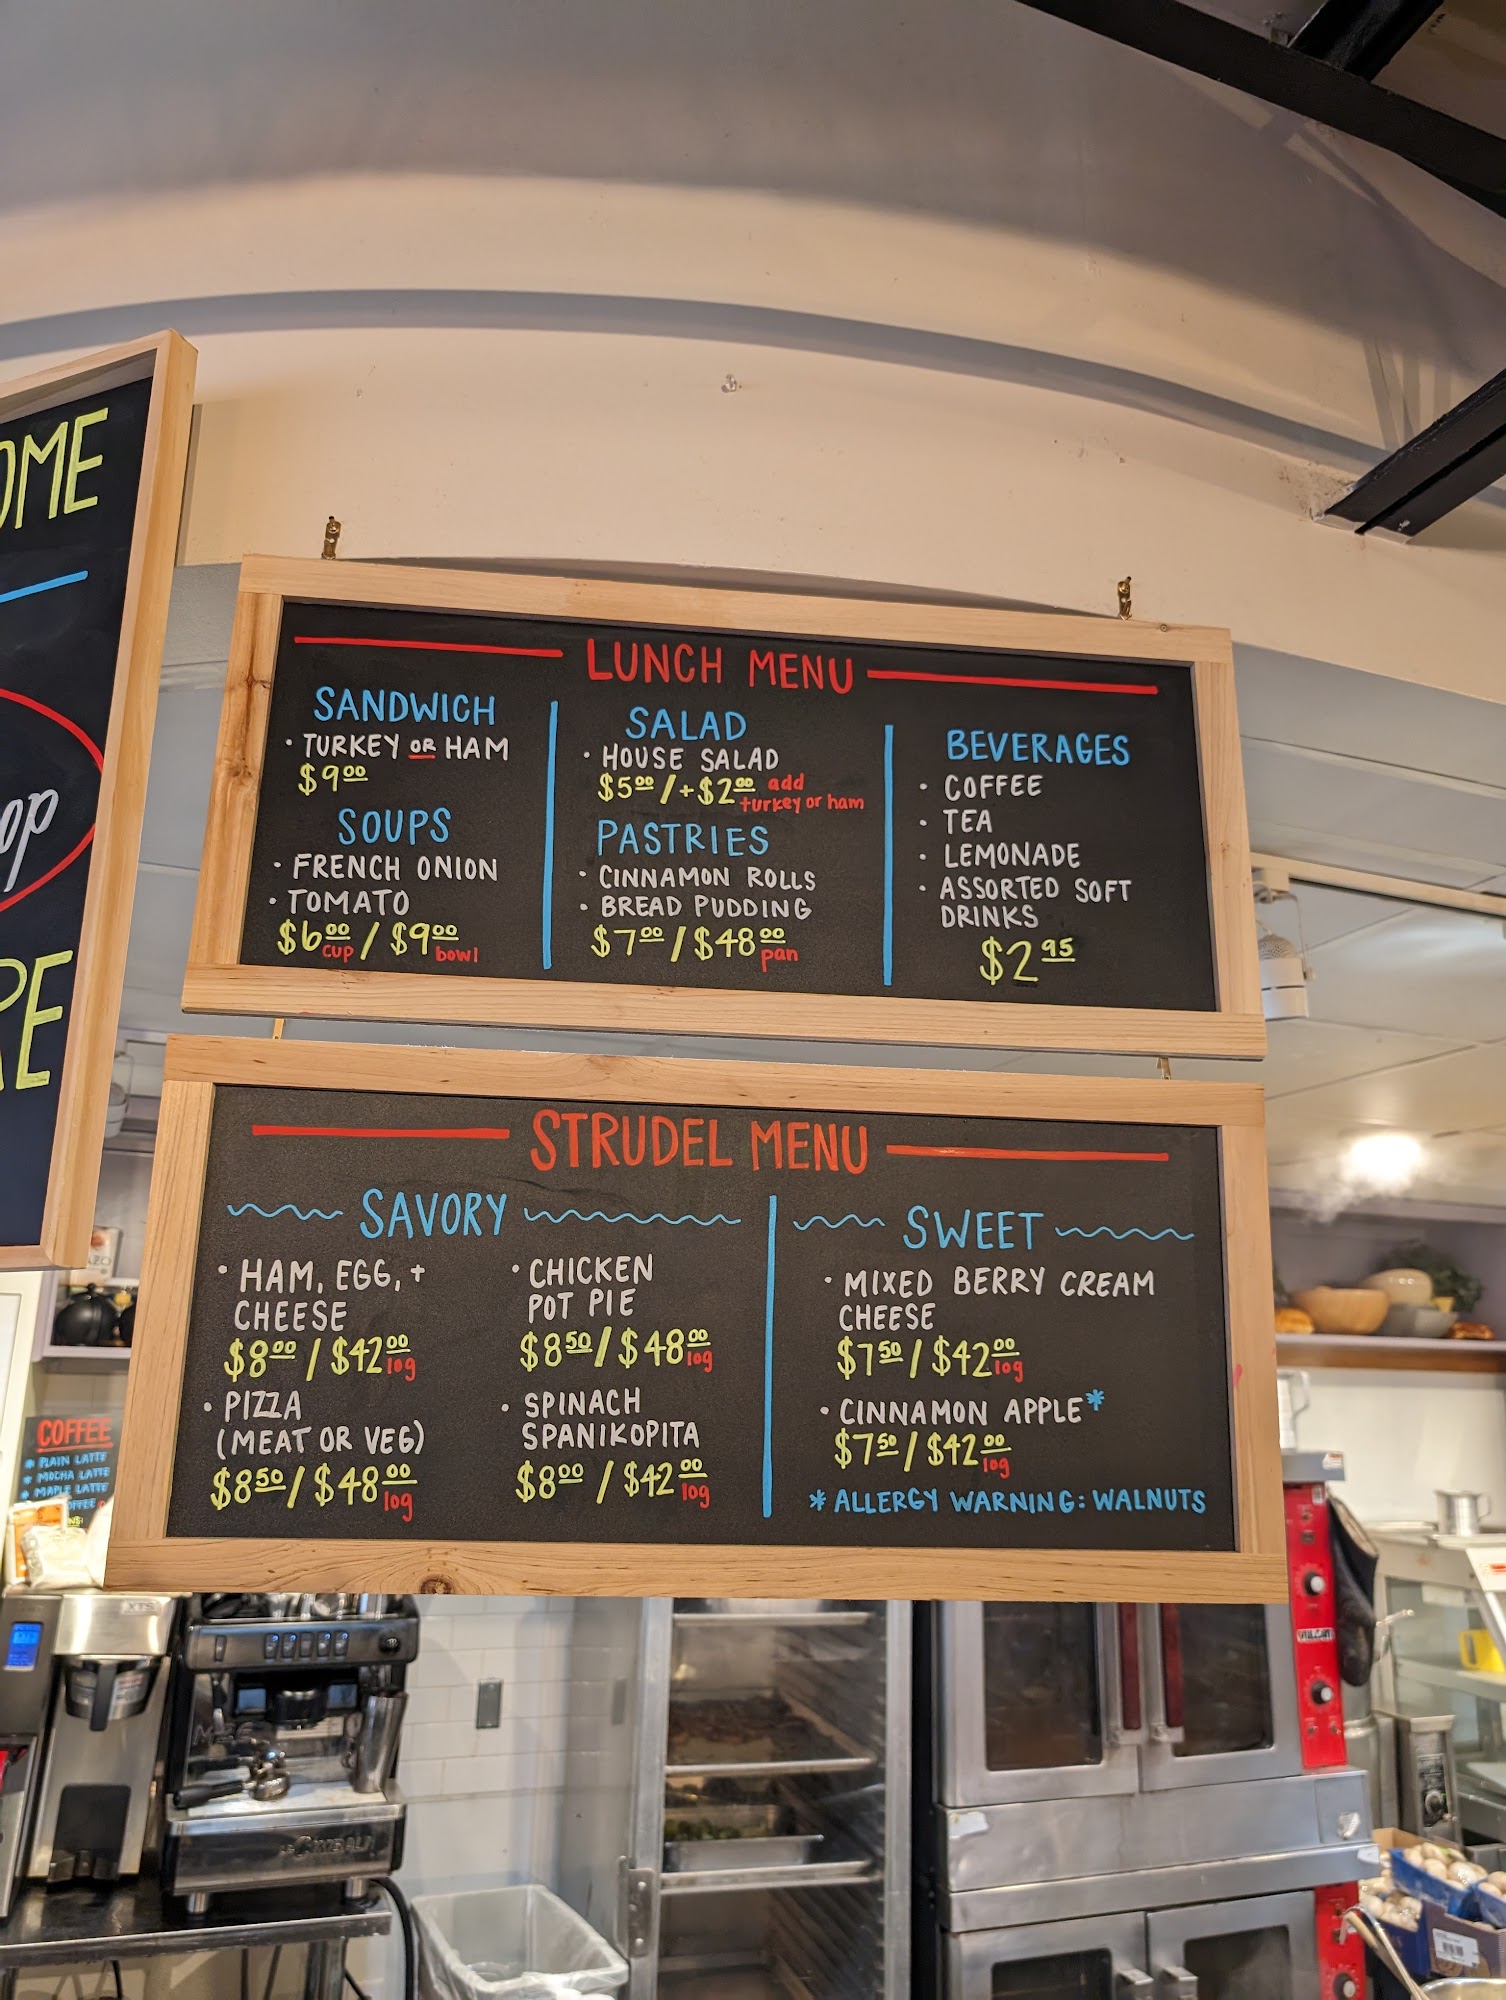 LUNCH MENU
SANDWICH
• TURKEY OR HAM
$9.00
SOUPS
• FRENCH ONION
• TOMATO
$6.00 cup / $9.00 bowl
SALAD
• HOUSE SALAD
$5.00 / + $2.00 add
turkey or ham
PASTRIES
• CINNAMON ROLLS
• BREAD PUDDING
$7.00 / $48.00 pan
BEVERAGES
• COFFEE
• TEA
• LEMONADE
• ASSORTED SOFT
DRINKS
$2.95
STRUDEL MENU
SAVORY
• HAM, EGG, +
CHEESE
$8.00 / $42.00 log
• PIZZA
(MEAT OR VEG)
$8.50 / $48.00 log
• CHICKEN
POT PIE
$8.50 / $48.00 log
• SPINACH
SPANIKOPITA
$8.00 / $42.00 log
SWEET
• MIXED BERRY CREAM
CHEESE
$7.50 / $42.00 log
• CINNAMON APPLE*
$7.50 / $42.00 log
* ALLERGY WARNING: WALNUTS
COFFEE
* PLAIN LATTE
* MOCHA LATTE
* MAPLE LATTE
VULCAN